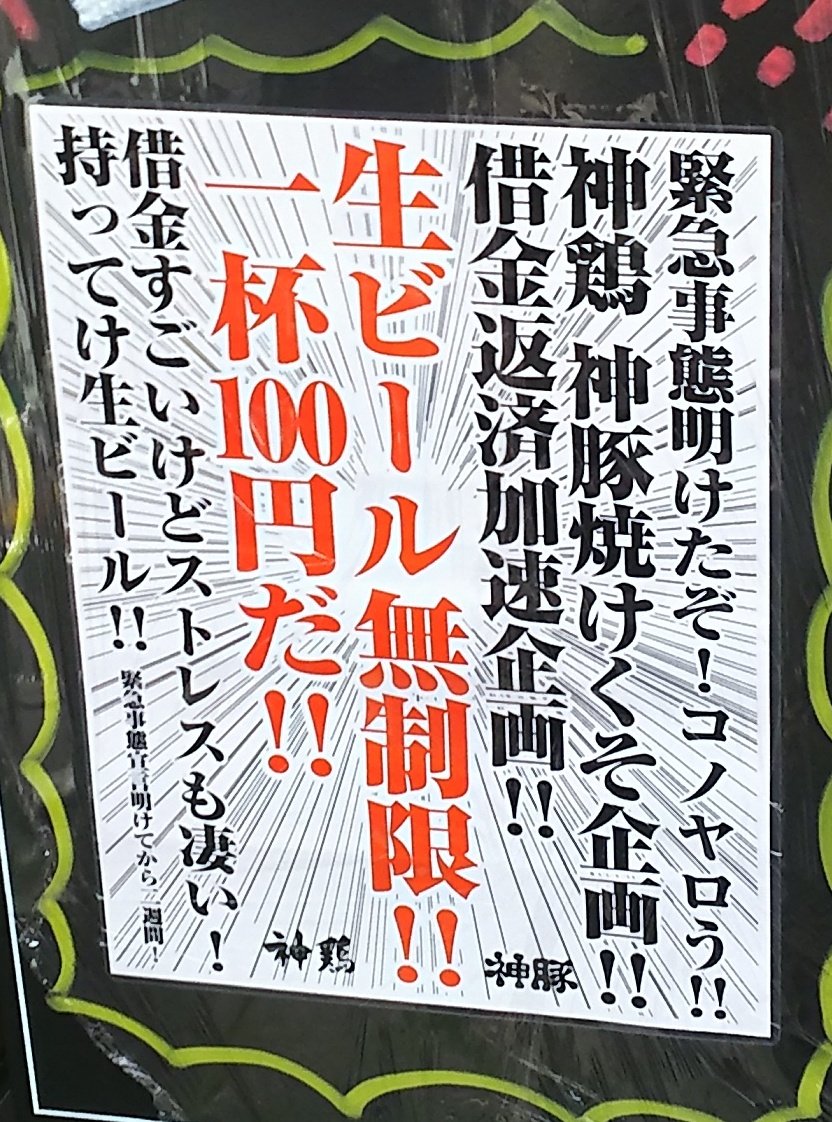 緊急事態明けたぞ！コノヤロう!!
神鶏 神豚焼けくそ企画!!
借金返済加速企画!!
生ビール無制限!!
一杯100円だ!!
借金すごいけどストレスも凄い！
持ってけ生ビール!!
緊急事態宣言明けてから二週間！
神鶏
神豚